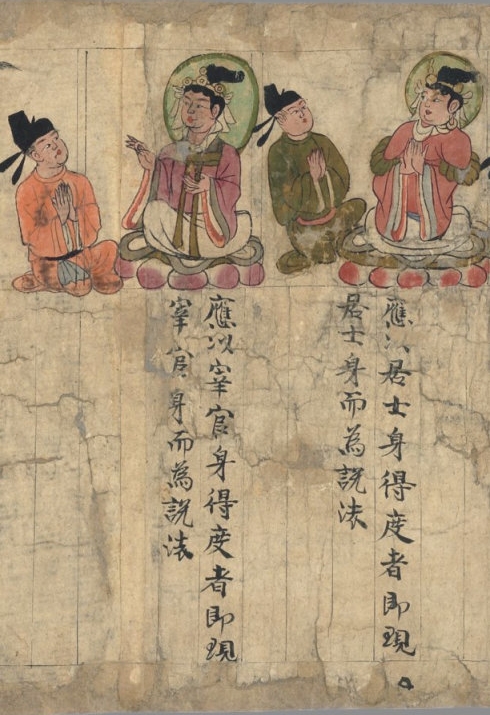 應以居士身得度者即現
居士身而為說法
應以宰官身得度者即現
宰官身而為說法